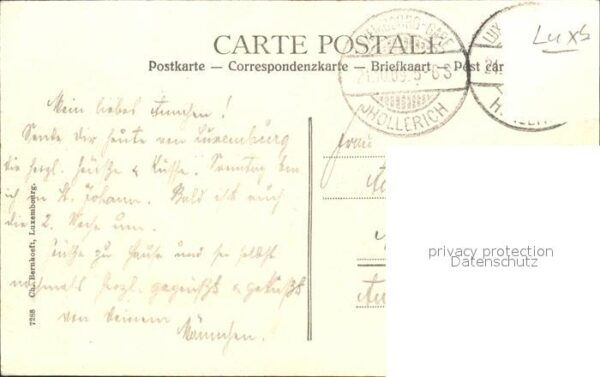 CARTE POSTALE
Postkarte — Correspondenzkarte — Briefkaart — Post car
Luxb
LUXEMBOURG-GARE
HOLLERICH
Mein liebes Annchen!
Sende dir heute von Luxemburg
die herzl. Grüße & Küsse. Sonntag bin
ich in St. Johann. Bald ist auch
die 2. Woche um.
Grüße zu Hause und sei selbst
nochmals herzl. gegrüßt & geküßt
von deinem
Männchen.
Frau
7288 Ch. Bernhoeft, Luxembourg.
privacy protection
Datenschutz